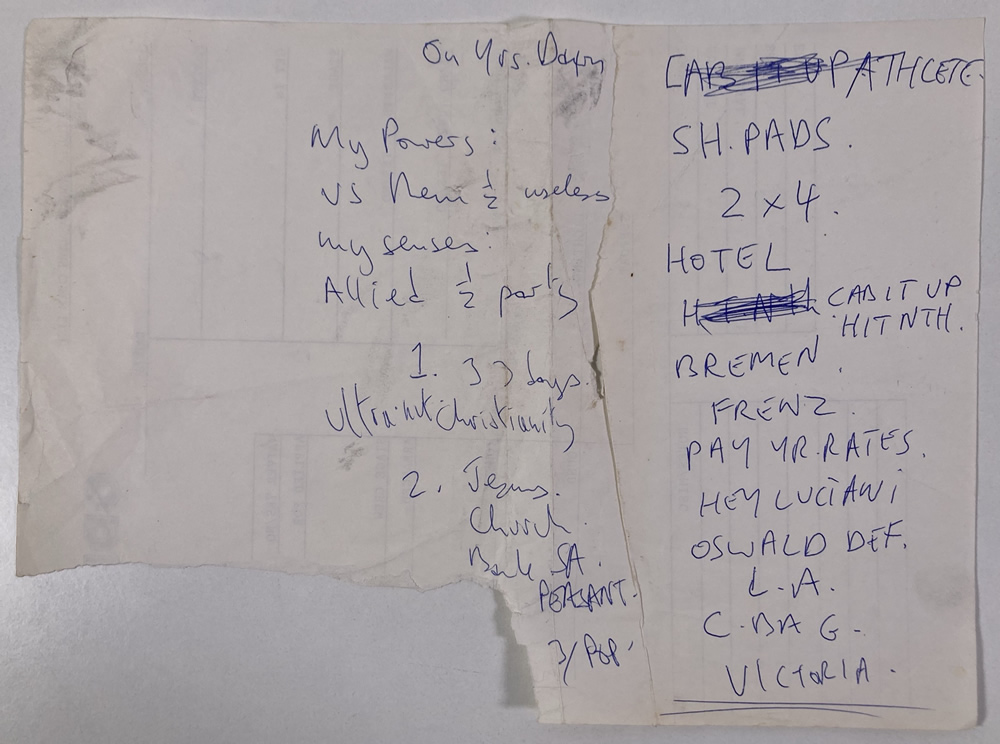 On Yrs. Down
My Powers:
VS Them ½ useless
my senses:
Allied ½ party
1. 33 days.
Christianity
2. Jesus.
Church.
Bank SA.
PEASANT.
3/ POP'
CAB IT UP ATHLETE.
SH. PADS.
2 x 4.
HOTEL
CAB IT UP
HIT NTH.
BREMEN.
FRENZ.
PAY YR. RATES.
HEY LUCIANI
OSWALD DEF.
L.A.
C.BAG.
VICTORIA.